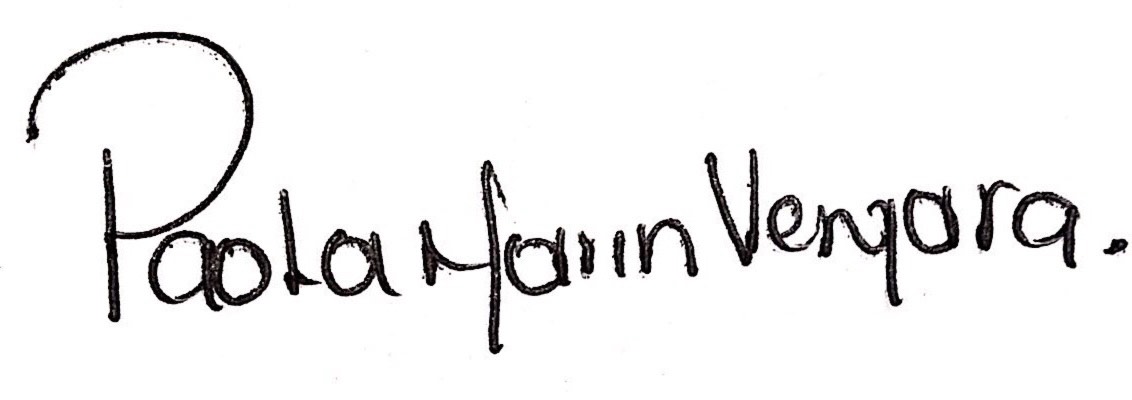 Paola Marin Vergara.